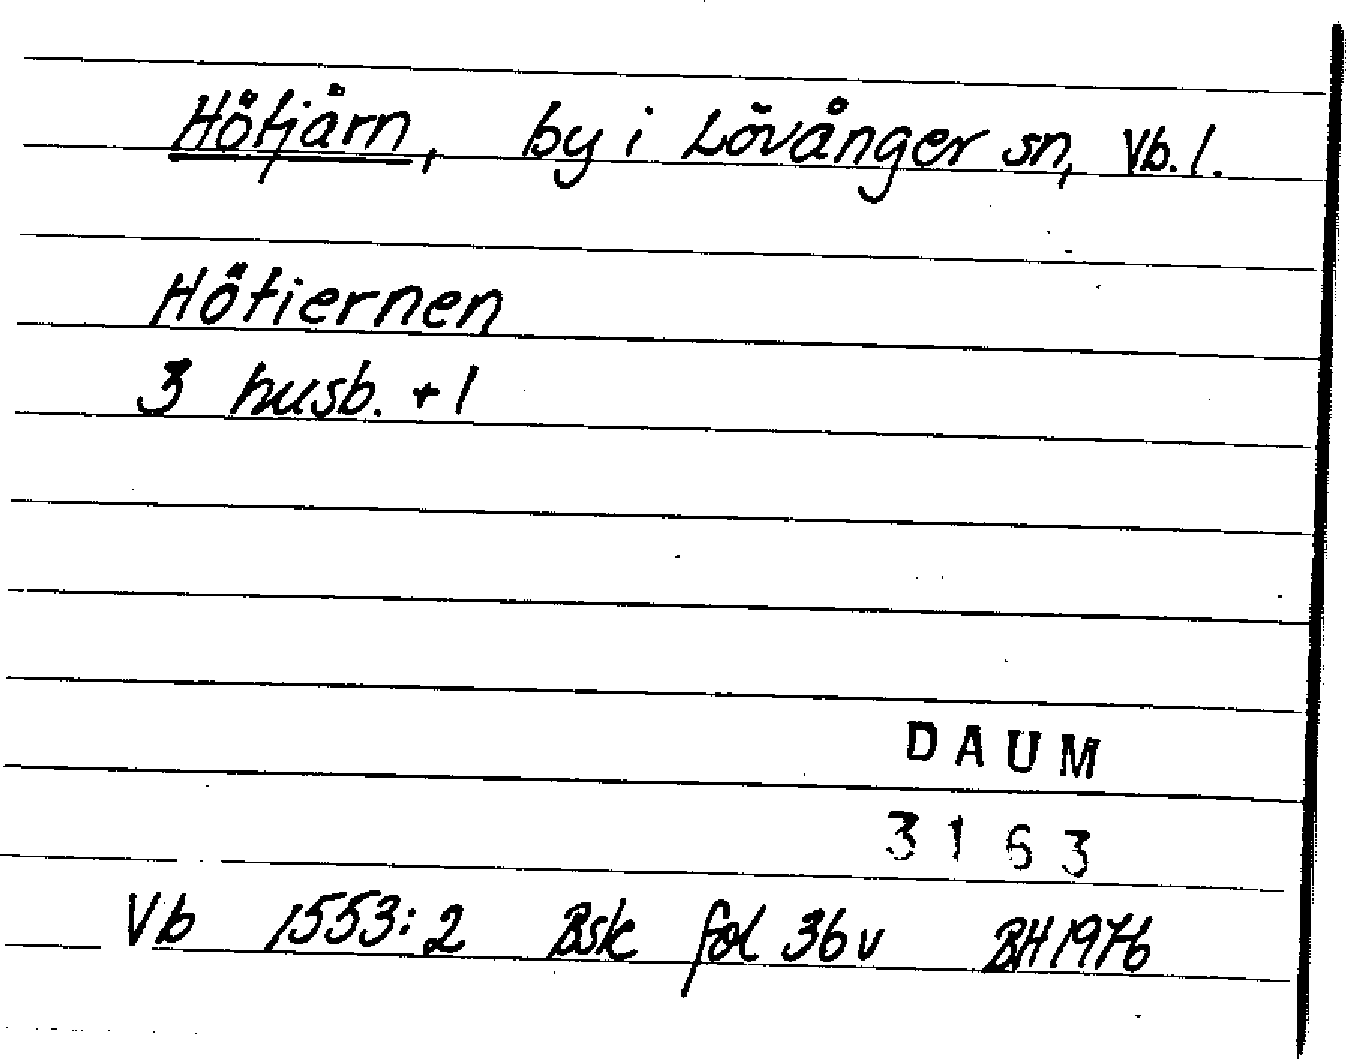 Hötjärn, by i Lövånger sn, Vb. l.
Hötiernen
3 husb. + 1
DAUM
3163
Vb 1553:2 Bsk fol 36 v BH 1976